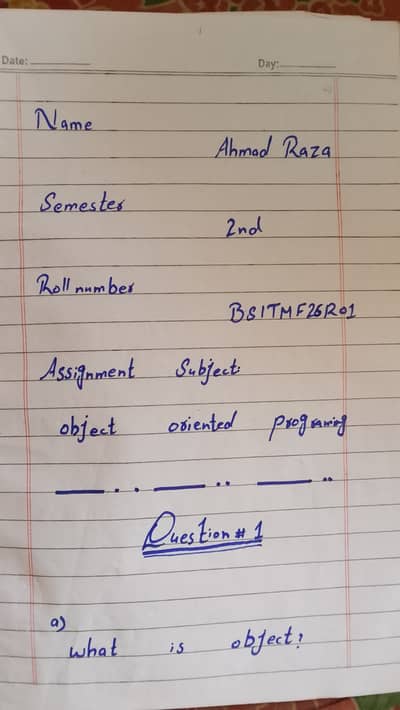 Date: Day:
Name
Ahmad Raza
Semester
2nd
Roll number
BSITMF26R01
Assignment Subject:
object oriented programing
Question # 1
a)
what is object?